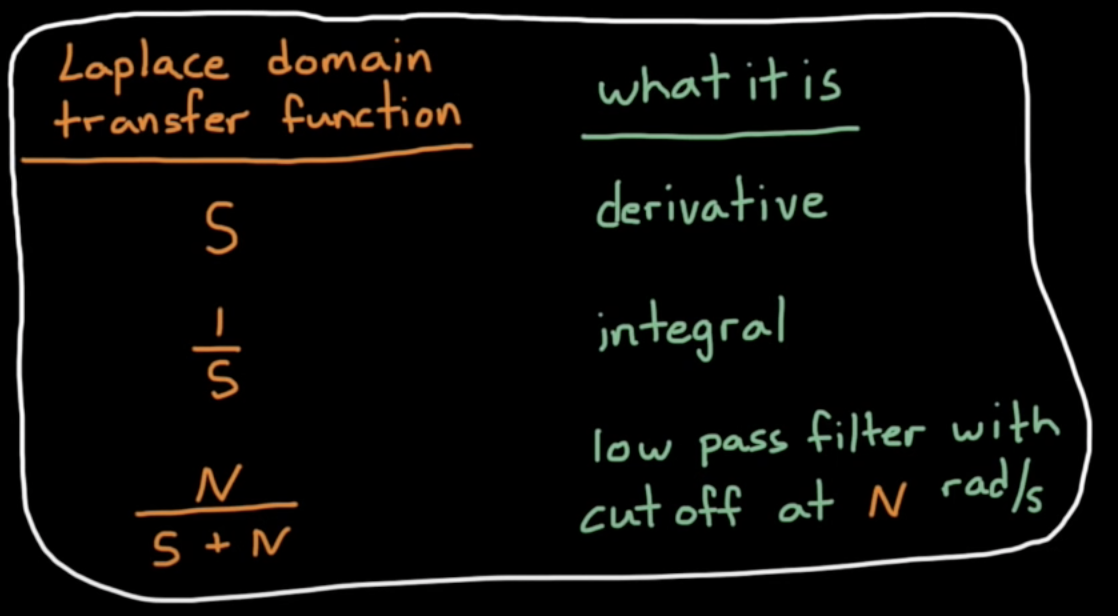 Laplace domain
transfer function
what it is
S
derivative
1
S
integral
N
S + N
low pass filter with
cutoff at N rad/s